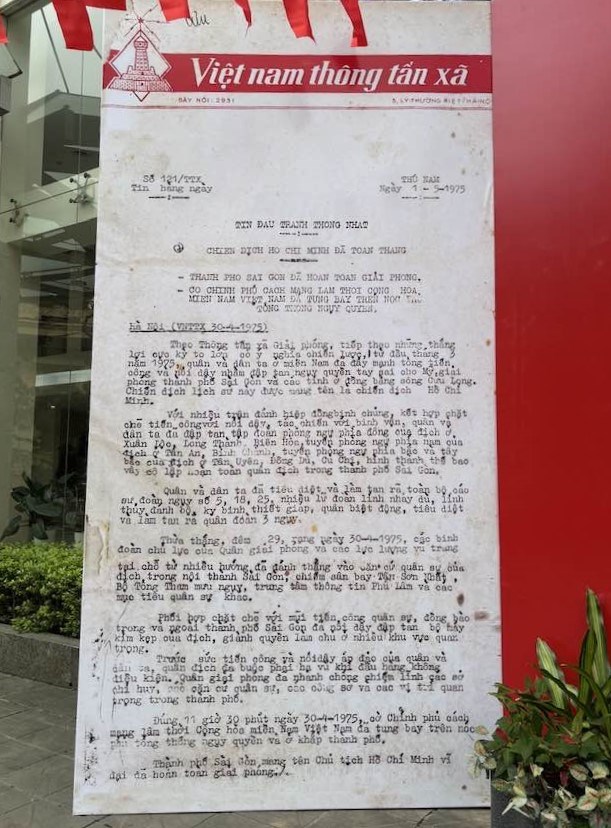 Việt nam thông tấn xã
DÂY NÓI: 2931 5, LÝ THƯỜNG KIỆT/HÀ NỘI
Số 121/TTX THỨ NĂM
Tin hàng ngày Ngày 1-5-1975
TIN ĐẤU TRANH THỐNG NHẤT
CHIẾN DỊCH HỒ CHÍ MINH ĐÃ TOÀN THẮNG
- THÀNH PHỐ SÀI GÒN ĐÃ HOÀN TOÀN GIẢI PHÓNG.
- CỜ CHÍNH PHỦ CÁCH MẠNG LÂM THỜI CỘNG HÒA
MIỀN NAM VIỆT NAM ĐÃ TUNG BAY TRÊN NÓC
TỔNG THỐNG NGỤY QUYỀN.
Hà Nội (VNTTX 30-4-1975)
Theo Thông tấn xã Giải phóng, tiếp theo những thắng
lợi cực kỳ to lớn có ý nghĩa chiến lược, từ đầu tháng 3
năm 1975, quân và dân ta ở miền Nam đã đẩy mạnh tiến
công và nổi dậy nhằm đập tan ngụy quyền tay sai cho Mỹ, giải
phóng thành phố Sài Gòn và các tỉnh ở đồng bằng sông Cửu Long.
Chiến dịch lịch sử này được mang tên là chiến dịch Hồ Chí
Minh.
Với nhiều trận đánh hiệp đồng binh chủng, kết hợp chặt
chẽ tiến công với nổi dậy, tác chiến với binh vận, quân và
dân ta đã đập tan tập đoàn phòng ngự phía đông của địch ở
Xuân Lộc, Long Thành, Biên Hòa, tuyến phòng ngự phía nam của
địch ở Tân An, Bình Chánh, tuyến phòng ngự phía bắc và tây
bắc của địch ở Tân Uyên, Đồng Dù, Củ Chi, hình thành thế bao
vây cô lập hoàn toàn quân địch trong thành phố Sài Gòn.
Quân và dân ta đã tiêu diệt và làm tan rã toàn bộ các
sư đoàn ngụy số 5, 18, 25, nhiều lữ đoàn lính nhảy dù, lính
thủy đánh bộ, kỵ binh thiết giáp, quân biệt động, tiêu diệt
và làm tan rã quân đoàn 3 ngụy.
Thừa thắng, đêm 29, rạng ngày 30-4-1975, các binh
đoàn chủ lực của Quân giải phóng và các lực lượng vũ trang
tại chỗ từ nhiều hướng đã đánh thẳng vào căn cứ quân sự của
địch trong nội thành Sài Gòn, chiếm sân bay Tân Sơn Nhất,
Bộ Tổng Tham mưu ngụy, trung tâm thông tin Phú Lâm và các
mục tiêu quân sự khác.
Phối hợp chặt chẽ với mũi tiến công quân sự, đồng bào
trong và ngoài thành phố Sài Gòn đã nổi dậy đập tan bộ máy
kìm kẹp của địch, giành quyền làm chủ ở nhiều khu vực quan
trọng.
Trước sức tiến công và nổi dậy áp đảo của quân và
dân ta, quân địch đã buộc phải hạ vũ khí đầu hàng không
điều kiện. Quân giải phóng đã nhanh chóng chiếm lĩnh các sở
chỉ huy, các căn cứ quân sự, các công sở và các vị trí quan
trọng trong thành phố.
Đúng 11 giờ 30 phút ngày 30-4-1975, cờ Chính phủ cách
mạng lâm thời Cộng hòa miền Nam Việt Nam đã tung bay trên nóc
tổng thống ngụy quyền và ở khắp thành phố.
Thành phố Sài Gòn mang tên Chủ tịch Hồ Chí Minh vĩ
đại đã hoàn toàn giải phóng./.